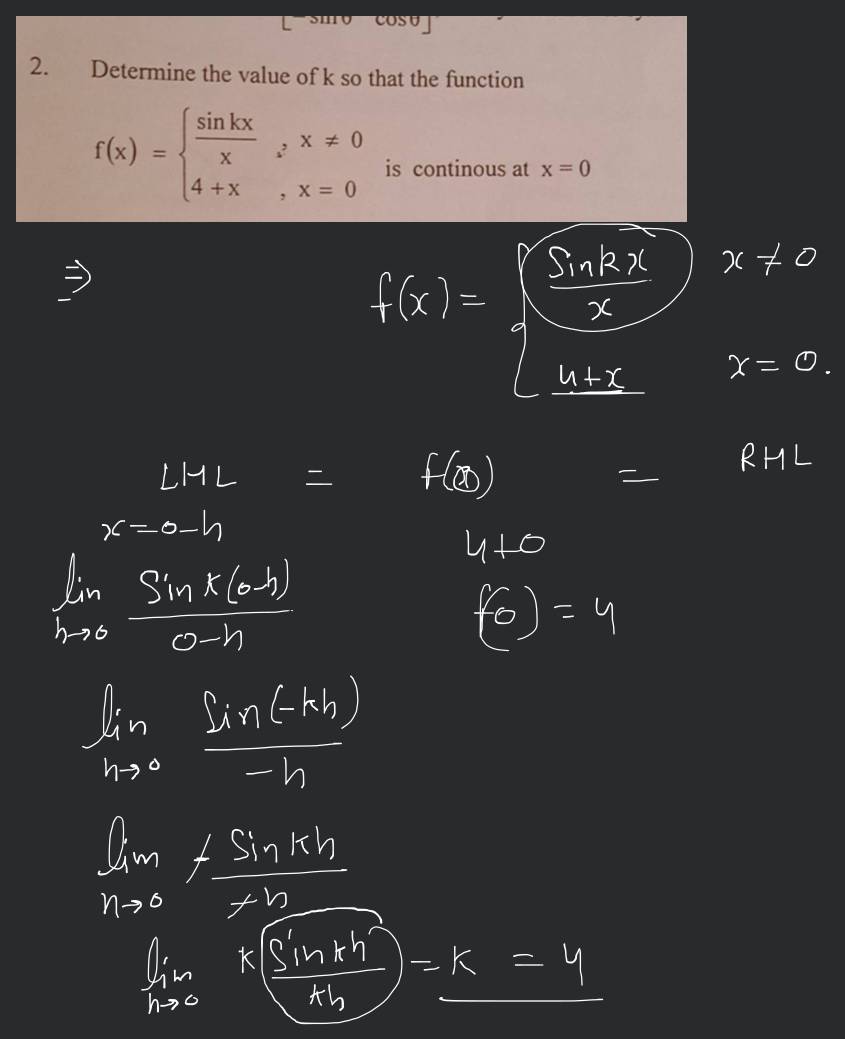 [-sinθ cosθ]
2. Determine the value of k so that the function
sin kx
f(x) = { x , x ≠ 0
4 +x , x = 0 is continous at x = 0
⇒ f(x) = { Sinkx / x x ≠ 0
4+x x = 0.
LHL = f(0) = RHL
x=0-h 4+0
lim h→0 Sin k(0-h) / 0-h f(0) = 4
lim h→0 Sin(-kh) / -h
lim h→0 -Sin kh / -h
lim h→0 k Sin kh / kh = k = 4